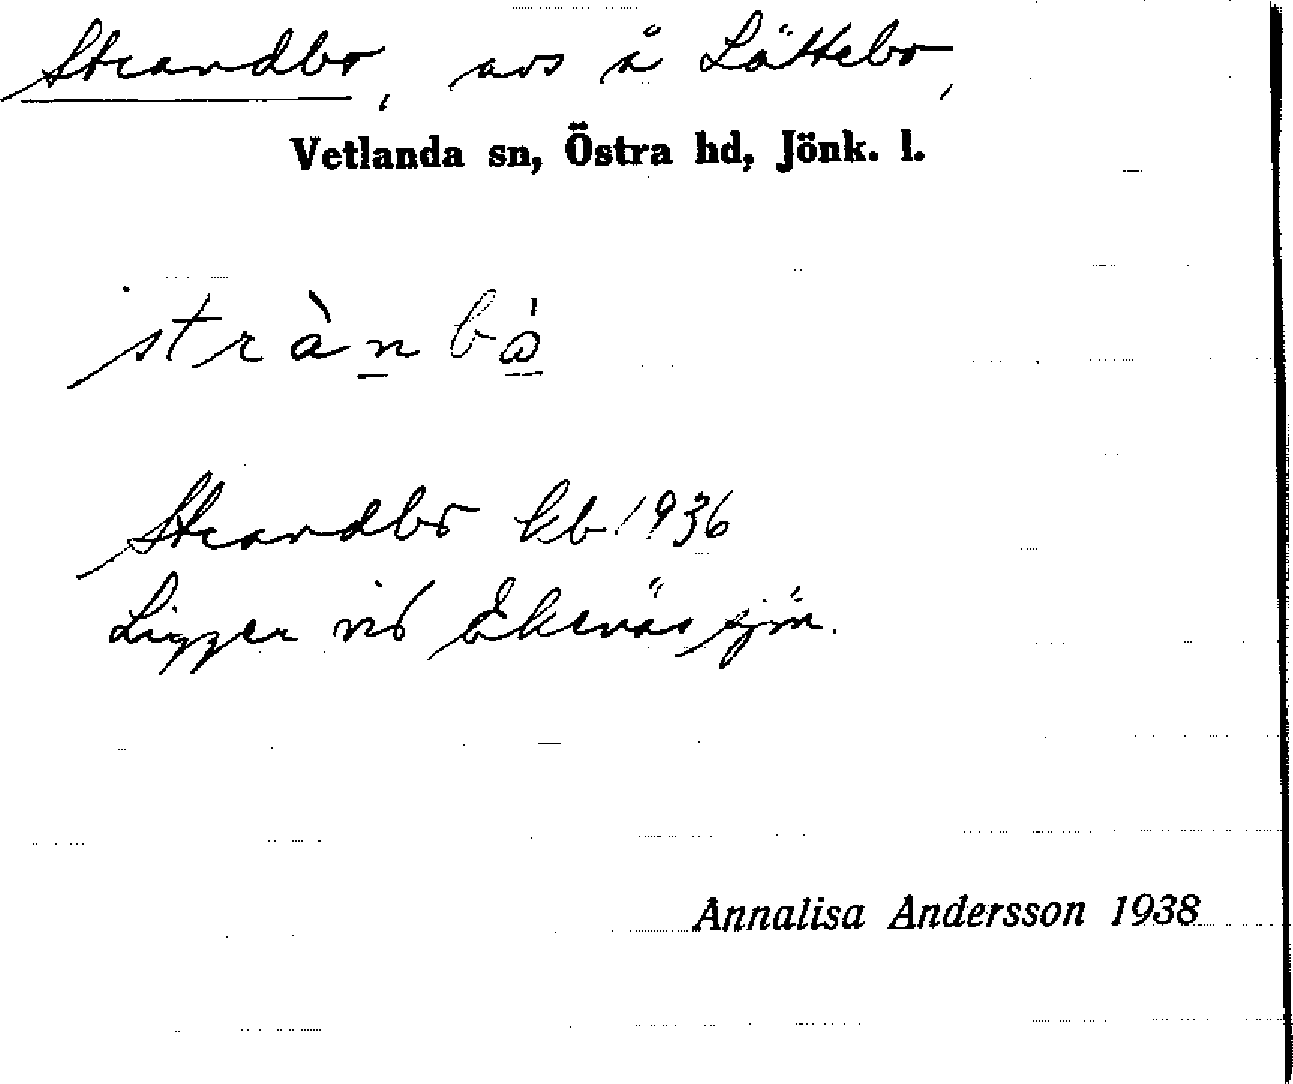 Strandbo, avs å Lättebo,
Vetlanda sn, Östra hd, Jönk. l.
strànbó
Strandbo kb. 1936
Ligger vid Ekenässjön.
Annalisa Andersson 1938